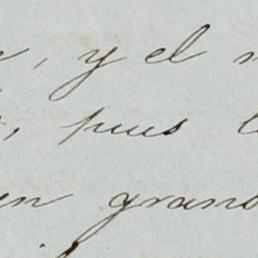 , y el
, pues
en grand